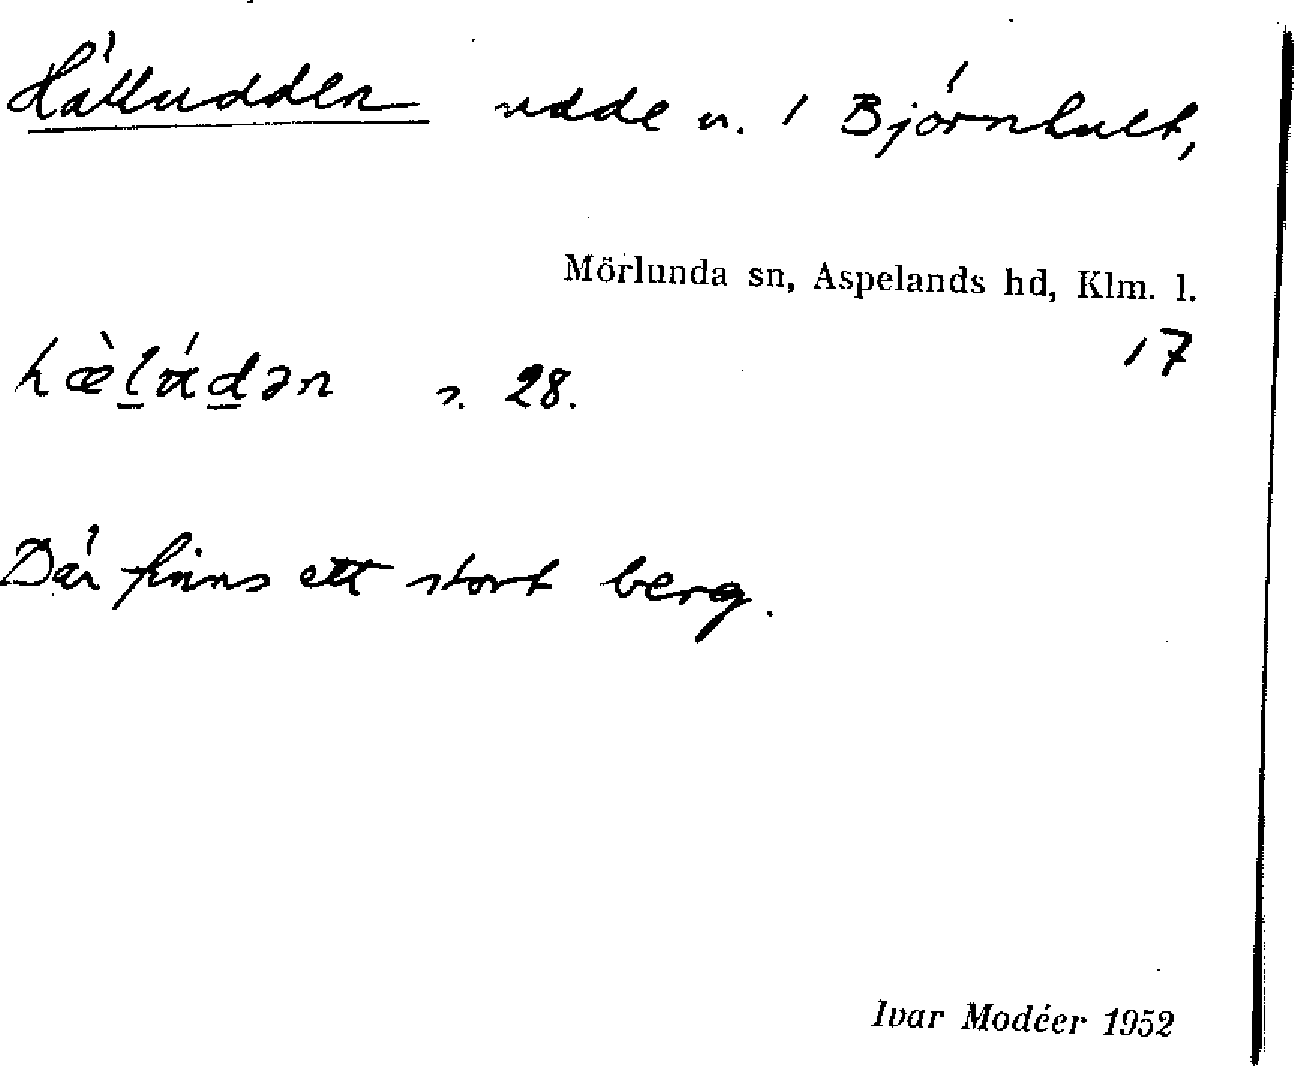 Hälludden udde n. i Björnhult,
Mörlunda sn, Aspelands hd, Klm. l.
17
hæ̀l̲ú̲d̲ən n. 28.
Där finns ett stort berg.
Ivar Modéer 1952